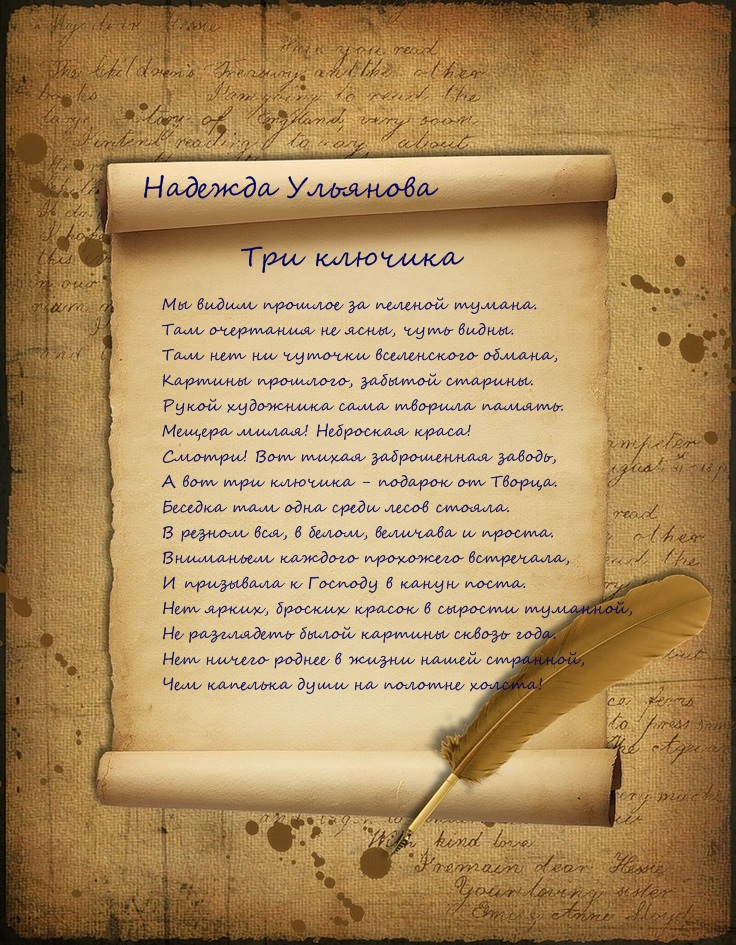 My dear Hessie
When you read
The Children's Treasury and the other
books I am going to read the
large Story of England, very soon
I intend reading to day about
Надежда Ульянова
Три ключика
Мы видим прошлое за пеленой тумана.
Там очертания не ясны, чуть видны.
Там нет ни чуточки вселенского обмана,
Картины прошлого, забытой старины.
Рукой художника сама творила память.
Мещера милая! Неброская краса!
Смотри! Вот тихая заброшенная заводь,
А вот три ключика - подарок от Творца.
Беседка там одна среди лесов стояла.
В резном вся, в белом, величава и проста.
Вниманьем каждого прохожего встречала,
И призывала к Господу в канун поста.
Нет ярких, броских красок в сырости туманной,
Не разглядеть былой картины сквозь года.
Нет ничего роднее в жизни нашей странной,
Чем капелька души на полотне холста!
read
other
the
but
to press some
the
very much
With kind love
I remain dear Hessie
Your loving sister
Emily Anne Lloyd